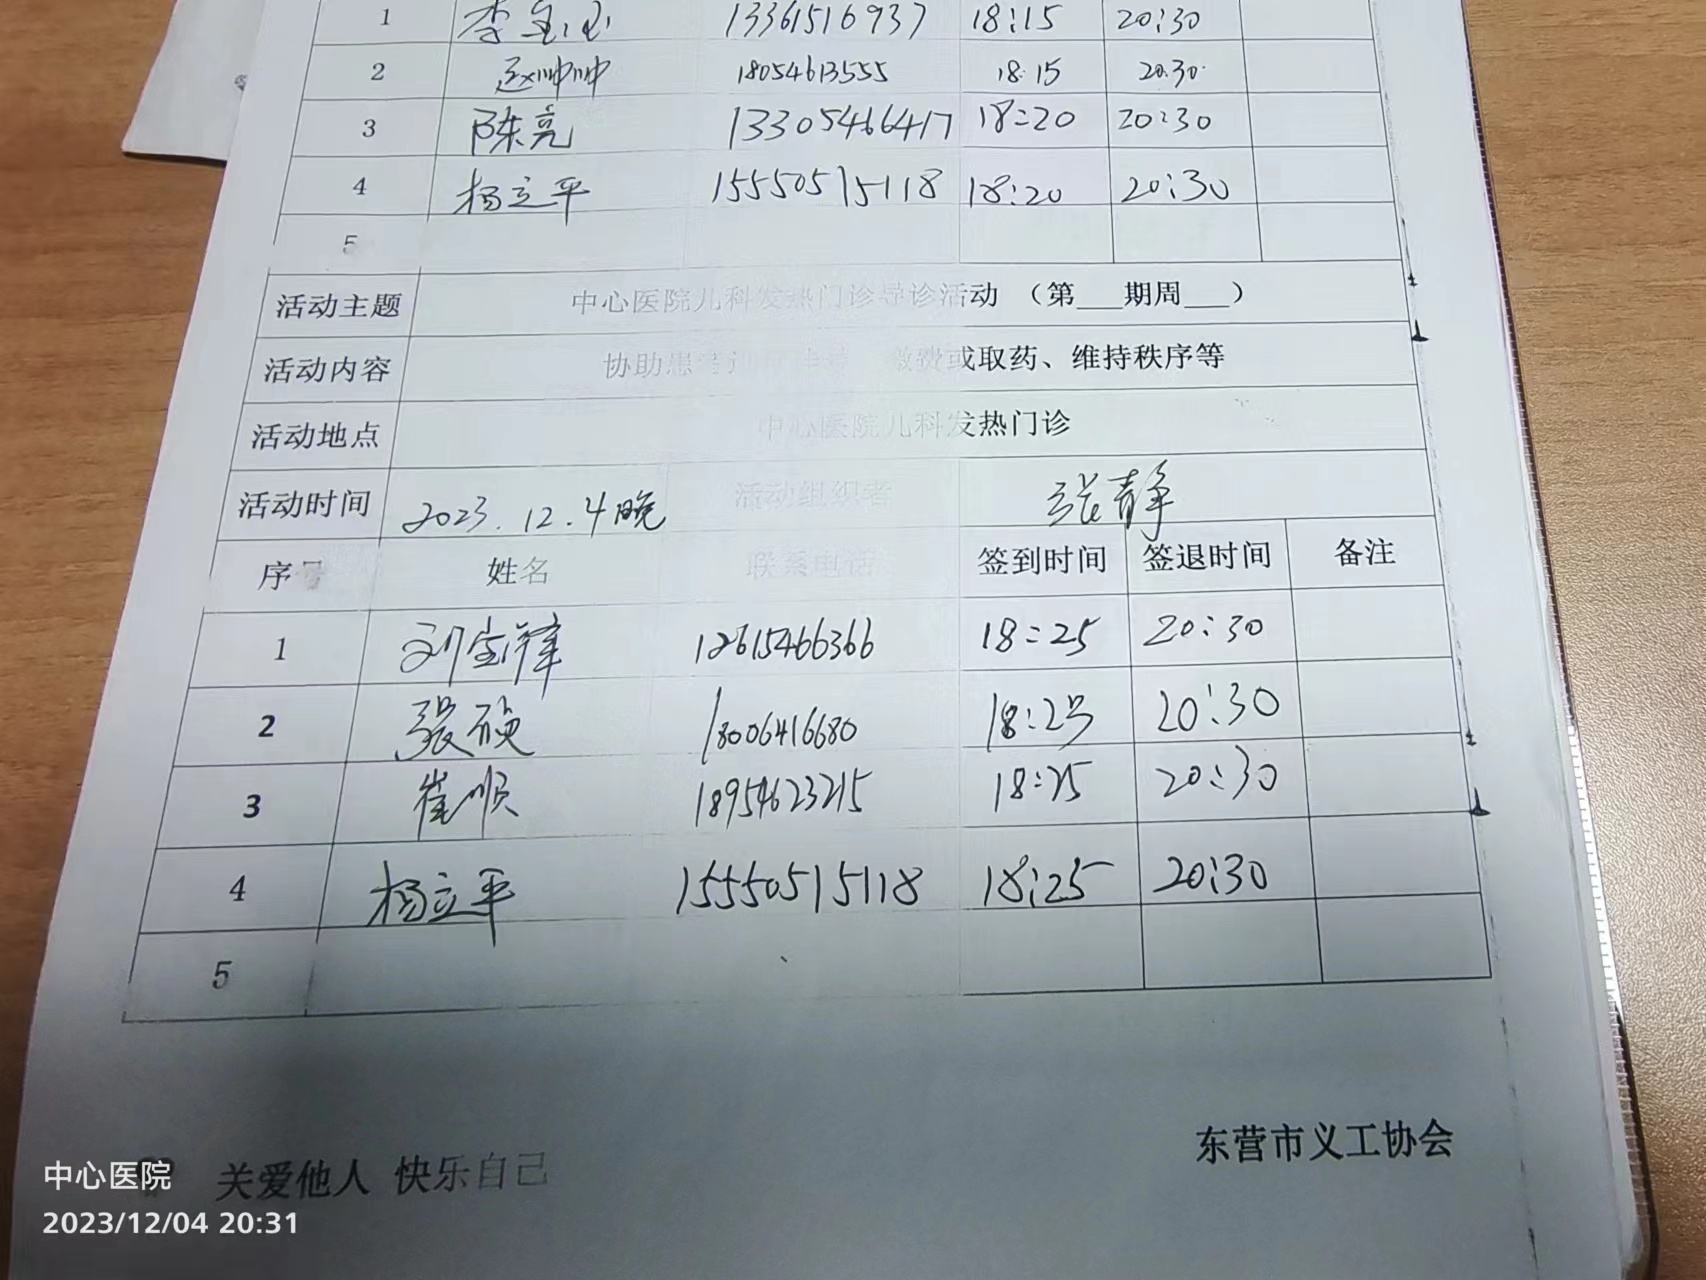 1 李宝玉 13361516937 18:15 20:30
2 赵帅帅 18054613555 18:15 20:30
3 陈亮 13305466417 18:20 20:30
4 杨立平 15550515118 18:20 20:30
5
活动主题 中心医院儿科发热门诊导诊活动 （第___期周___）
活动内容 协助患 缴费或取药、维持秩序等
活动地点 中心医院儿科发热门诊
活动时间 2023.12.4晚 活动组织者 张静
序号 姓名 联系电话 签到时间 签退时间 备注
1 刘宝祥 12615466366 18:25 20:30
2 张硕 18006416680 18:25 20:30
3 崔顺 18954623215 18:25 20:30
4 杨立平 15550515118 18:25 20:30
5
东营市义工协会
关爱他人 快乐自己
中心医院
2023/12/04 20:31